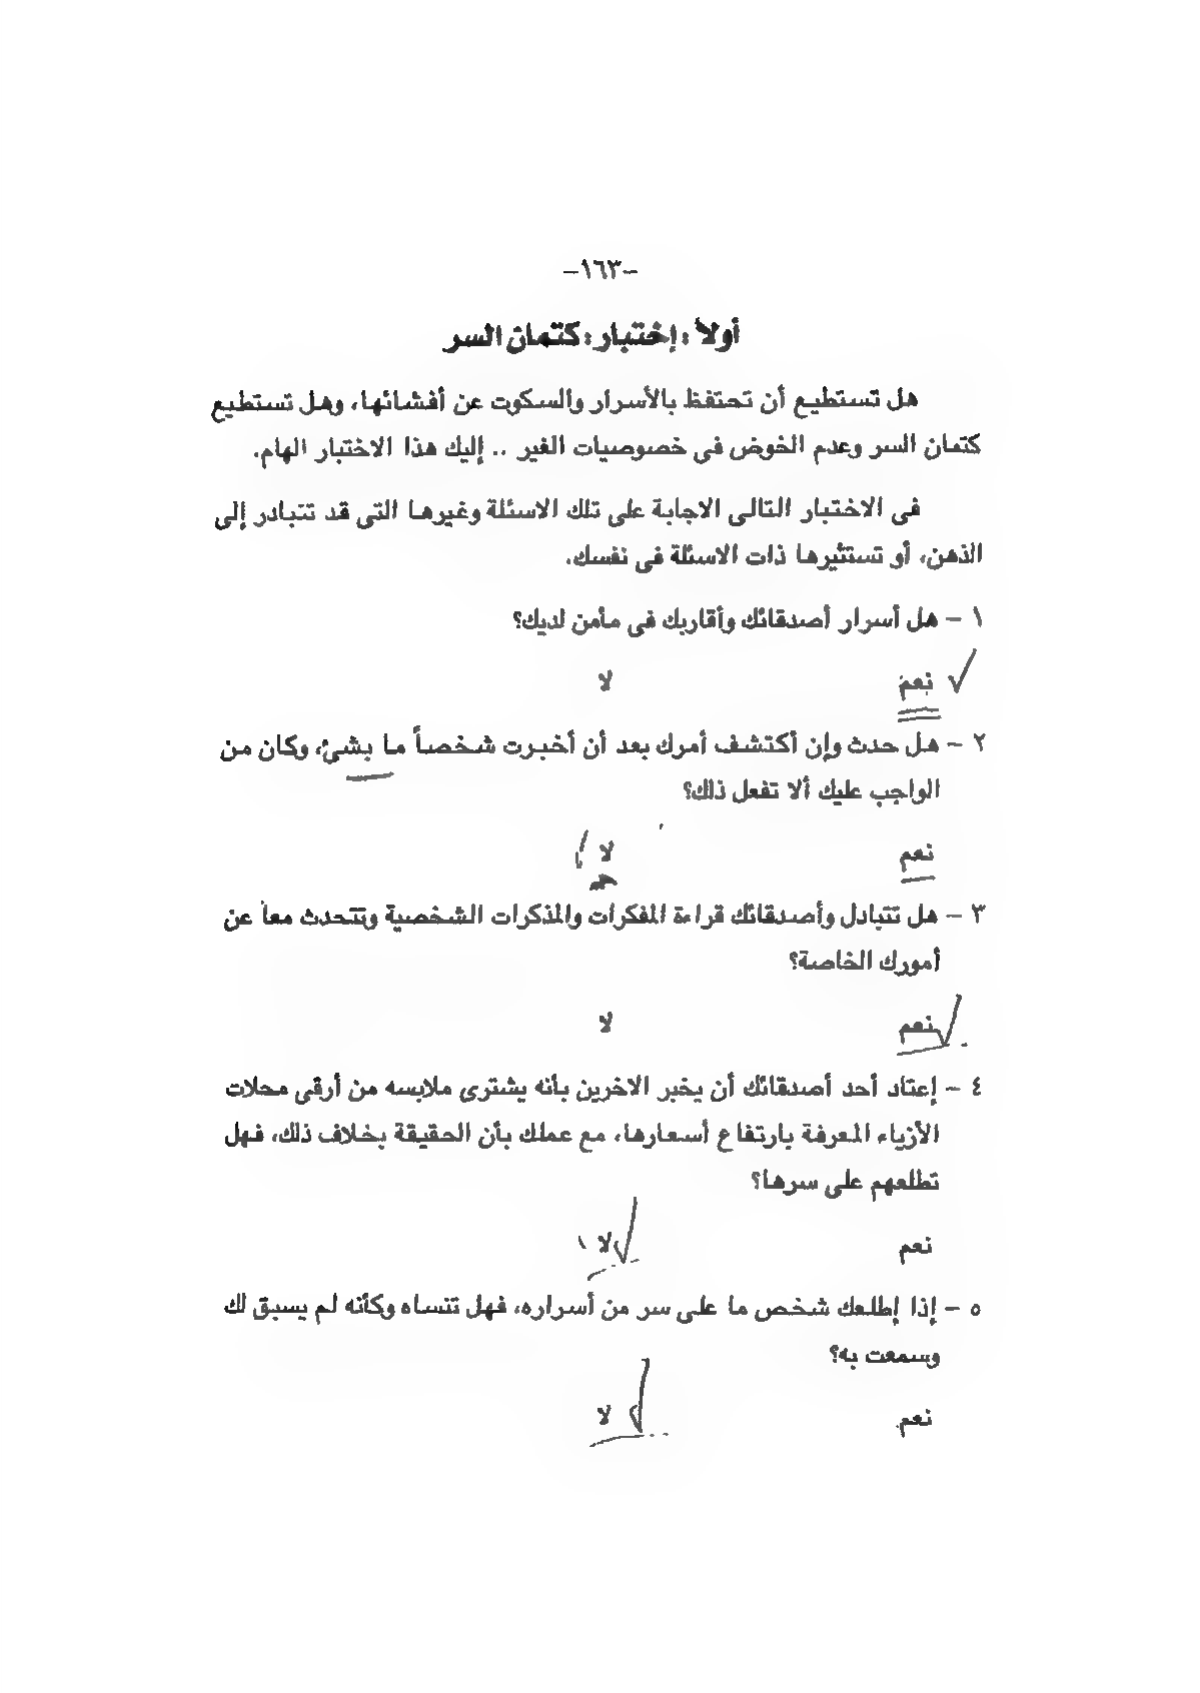 -١٦٣-
أولاً : إختبار : كتمان السر
هل تستطيع أن تحتفظ بالأسرار والسكوت عن أفشائها، وهل تستطيع
كتمان السر وعدم الخوض فى خصوصيات الغير .. إليك هذا الاختبار الهام.
فى الاختبار التالى الاجابة على تلك الاسئلة وغيرها التى قد تتبادر إلى
الذهن، أو تستثيرها ذات الاسئلة فى نفسك.
١ - هل أسرار أصدقائك وأقاربك فى مأمن لديك؟
نعم لا
٢ - هل حدث وإن أكتشف أمرك بعد أن أخبرت شخصاً ما بشئ، وكان من
الواجب عليك ألا تفعل ذلك؟
نعم لا
٣ - هل تتبادل وأصدقائك قراءة المفكرات والمذكرات الشخصية وتتحدث معاً عن
أمورك الخاصة؟
نعم لا
٤ - إعتاد أحد أصدقائك أن يخبر الاخرين بأنه يشترى ملابسه من أرقى محلات
الأزياء المعرفة بارتفاع أسعارها، مع عملك بأن الحقيقة بخلاف ذلك، فهل
تطلعهم على سرها؟
نعم لا
٥ - إذا إطلعك شخص ما على سر من أسراره، فهل تنساه وكأنه لم يسبق لك
وسمعت به؟
نعم لا